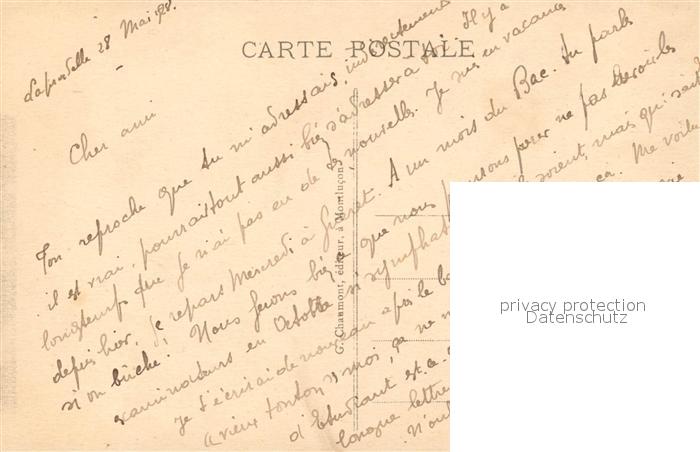 CARTE POSTALE
28 Mai 28.
Cher ami
Ton reproche que tu m'adressais, indirectement
il est vrai, pourrait tout aussi bien s'adresser à toi. Il y a
longtemps que je n'ai pas eu de tes nouvelles. Je suis en vacances
depuis hier, je repars Mercredi à Guéret. A un mois du Bac. tu parles
si on bûche! Nous ferons bien ce que nous pensons pour ne pas
examinateurs en Octobre si soient, mais qui
Je t'écrirai de nouveau après le ça. Me voilà
(" vieux tonton") moi, ça ne
d'Etudiant est-ce
longue lettre
G. Chaumont, éditeur, à Montluçon
privacy protection
Datenschutz